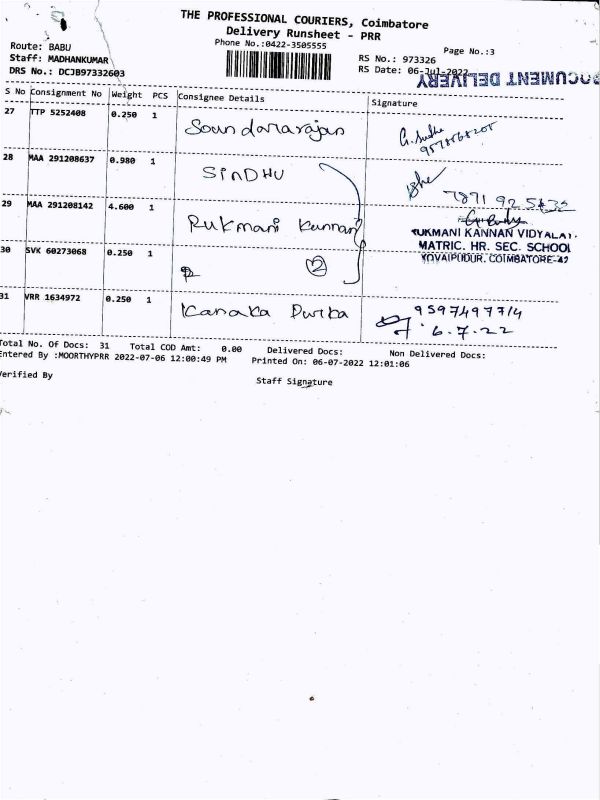 THE PROFESSIONAL COURIERS, Coimbatore
Delivery Runsheet - PRR
Phone No.:0422-3505555
Page No.:3
Route: BABU
Staff: MADHANKUMAR
DRS No.: DCJB97332603
RS No.: 973326
RS Date: 06-Jul-2022
DOCUMENT DELIVERY
S No Consignment No Weight PCS Consignee Details Signature
27 TTP 5252408 0.250 1 Soundararajan
28 MAA 291208637 0.980 1 SINDHU
29 MAA 291208142 4.600 1 Rukmani Kannan
RUKMANI KANNAN VIDYALAYA
MATRIC. HR. SEC. SCHOOL
KOVAIPUDUR, COIMBATORE-42
30 SVK 60273068 0.250 1 2
31 VRR 1634972 0.250 1 Kanaka Durka
6.7.22
Total No. Of Docs: 31 Total COD Amt: 0.00 Delivered Docs: Non Delivered Docs:
Entered By :MOORTHYPRR 2022-07-06 12:00:49 PM Printed On: 06-07-2022 12:01:06
Verified By
Staff Signature